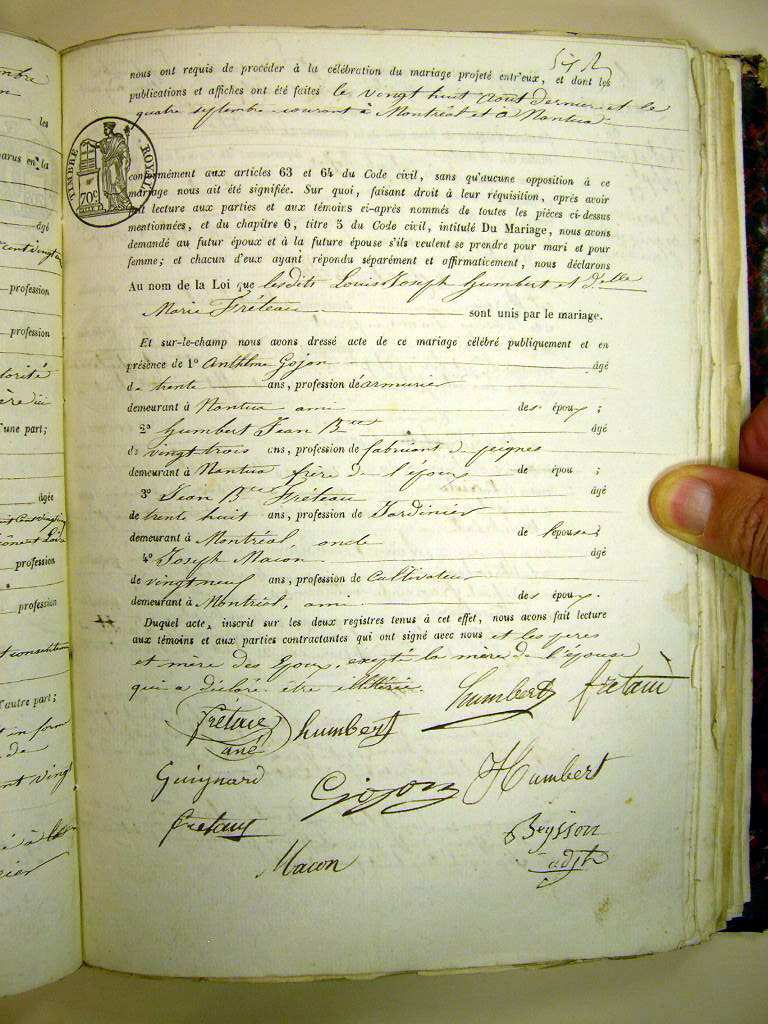 nous ont requis de procéder à la célébration du mariage projeté entr'eux, et dont les
publications et affiches ont été faites le vingt huit Aout dernier et le
quatre septembre courant à Montréal et à Nantua
TIMBRE ROYAL
70c
conformément aux articles 63 et 64 du Code civil, sans qu'aucune opposition à ce
mariage nous ait été signifiée. Sur quoi, faisant droit à leur réquisition, après avoir
fait lecture aux parties et aux témoins ci-après nommés de toutes les pièces ci-dessus
mentionnées, et du chapitre 6, titre 5 du Code civil, intitulé Du Mariage, nous avons
demandé au futur époux et à la future épouse s'ils veulent se prendre pour mari et pour
femme; et chacun d'eux ayant répondu séparément et affirmativement, nous déclarons
Au nom de la Loi que lesdits Louis Joseph Humbert et Delle
Marie Fréteau sont unis par le mariage.
Et sur-le-champ nous avons dressé acte de ce mariage célébré publiquement et en
présence de 1º Anthelme Gojon âgé
de trente ans, profession d'armurier
demeurant à Nantua ami des époux;
2º Humbert Jean Bte âgé
de vingt trois ans, profession de fabricant de peignes
demeurant à Nantua frère de l'époux de épou ;
3º Jean Bte Fréteau âgé
de trente huit ans, profession de Jardinier
demeurant à Montréal, oncle de l'épouse;
4º Joseph Macon âgé
de vingt neuf ans, profession de Cultivateur
demeurant à Montréal, ami des époux.
Duquel acte, inscrit sur les deux registres tenus à cet effet, nous avons fait lecture
aux témoins et aux parties contractantes qui ont signé avec nous et les peres
et mère des Epoux, excepté la mère de l'épouse
qui a déclaré etre illitérée.
humbert fretau
fretau humbert
ané
Guignard Gojon Humbert
fretau Beysson
Macon adjt
mbre
les
parus en la
âgé
profession
profession
d'une part;
âgée
profession
profession
d'autre part;